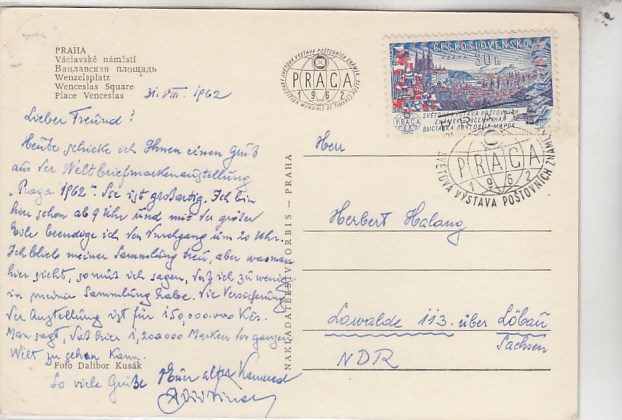 PRAHA
Václavské náměstí
Вацлавская площадь
Wenzelsplatz
Wenceslas Square
Place Venceslas
31. VIII. 1962
Lieber Freund!
Heute schicke ich Ihnen einen Gruß
aus der Weltbriefmarkenausstellung
„Praga 1962". Sie ist großartig. Ich bin
hier schon ab 9 Uhr und mit der größer
Eile beendige ich den Durchgang um 20 Uhr.
Ich bleib meiner Sammlung treu, aber was man
hier sieht, so muß ich sagen, daß ich zu wenig
in meine Sammlung habe. Die Versicherung
der Ausstellung ist für 150,000.000 Kčs.
Man sagt, daß hier 1,200000 Marken for ganzer
Welt zu sehen kann.
Foto Dalibor Kusák
So viele Grüße Euer alter Kamerad
NAKLADATELSTVÍ ORBIS – PRAHA
PRAGA
1962
SVĚTOVÁ VÝSTAVA POŠTOVNÍCH ZNÁMEK
ČESKOSLOVENSKO
30 h
SVĚTOVÁ VÝSTAVA POŠTOVNÍCH
ZNÁMEK
ВЫСТАВКА ПОЧТОВЫХ МАРОК
PRAGA
1962
PRAGA
1962
SVĚTOVÁ VÝSTAVA POŠTOVNÍCH ZNÁMEK
Herr
Herbert Halang
Lawalde 113. über Löbau
Sachsen
NDR